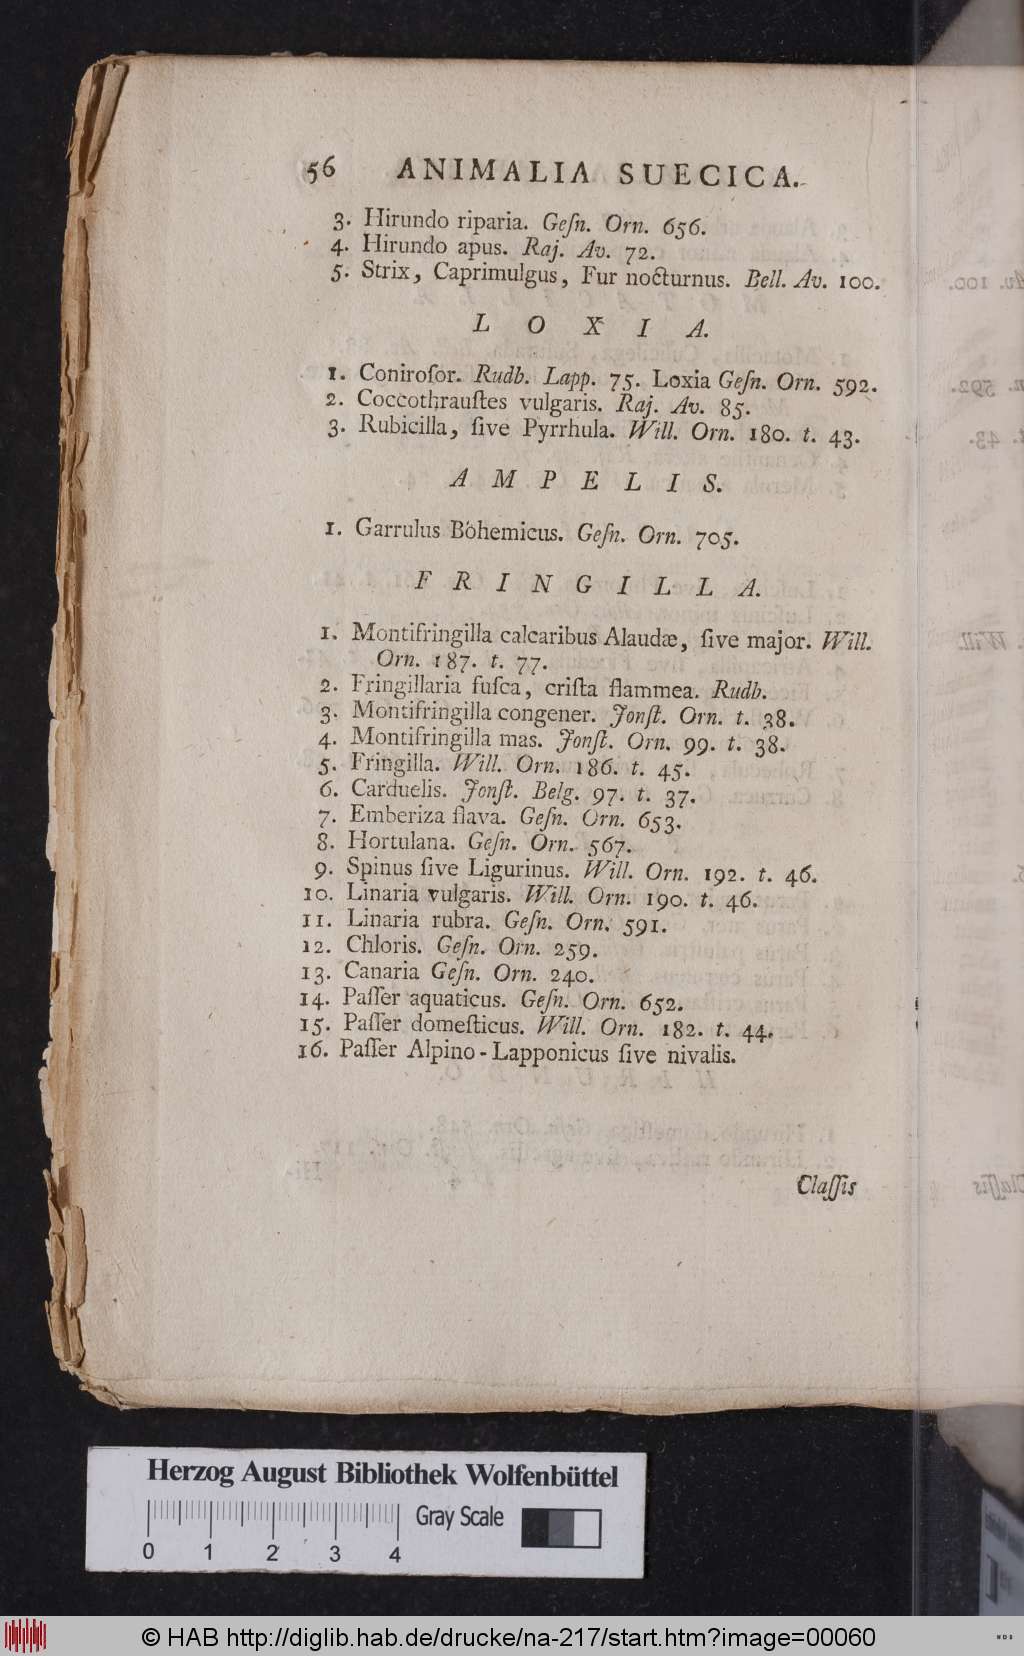 56 ANIMALIA SUECICA.
3. Hirundo riparia. Geſn. Orn. 656.
4. Hirundo apus. Raj. Av. 72.
5. Strix, Caprimulgus, Fur nocturnus. Bell. Av. 100.
L O X I A.
1. Coniroſor. Rudb. Lapp. 75. Loxia Geſn. Orn. 592.
2. Coccothrauſtes vulgaris. Raj. Av. 85.
3. Rubicilla, ſive Pyrrhula. Will. Orn. 180. t. 43.
A M P E L I S.
1. Garrulus Bohemicus. Geſn. Orn. 705.
F R I N G I L L A.
1. Montifringilla calcaribus Alaudæ, ſive major. Will.
Orn. 187. t. 77.
2. Fringillaria fuſca, criſta flammea. Rudb.
3. Montifringilla congener. Jonſt. Orn. t. 38.
4. Montifringilla mas. Jonſt. Orn. 99. t. 38.
5. Fringilla. Will. Orn. 186. t. 45.
6. Carduelis. Jonſt. Belg. 97. t. 37.
7. Emberiza flava. Geſn. Orn. 653.
8. Hortulana. Geſn. Orn. 567.
9. Spinus ſive Ligurinus. Will. Orn. 192. t. 46.
10. Linaria vulgaris. Will. Orn. 190. t. 46.
11. Linaria rubra. Geſn. Orn. 591.
12. Chloris. Geſn. Orn. 259.
13. Canaria Geſn. Orn. 240.
14. Paſſer aquaticus. Geſn. Orn. 652.
15. Paſſer domeſticus. Will. Orn. 182. t. 44.
16. Paſſer Alpino-Lapponicus ſive nivalis.
Claſſis
Herzog August Bibliothek Wolfenbüttel
Gray Scale
0 1 2 3 4
© HAB http://diglib.hab.de/drucke/na-217/start.htm?image=00060